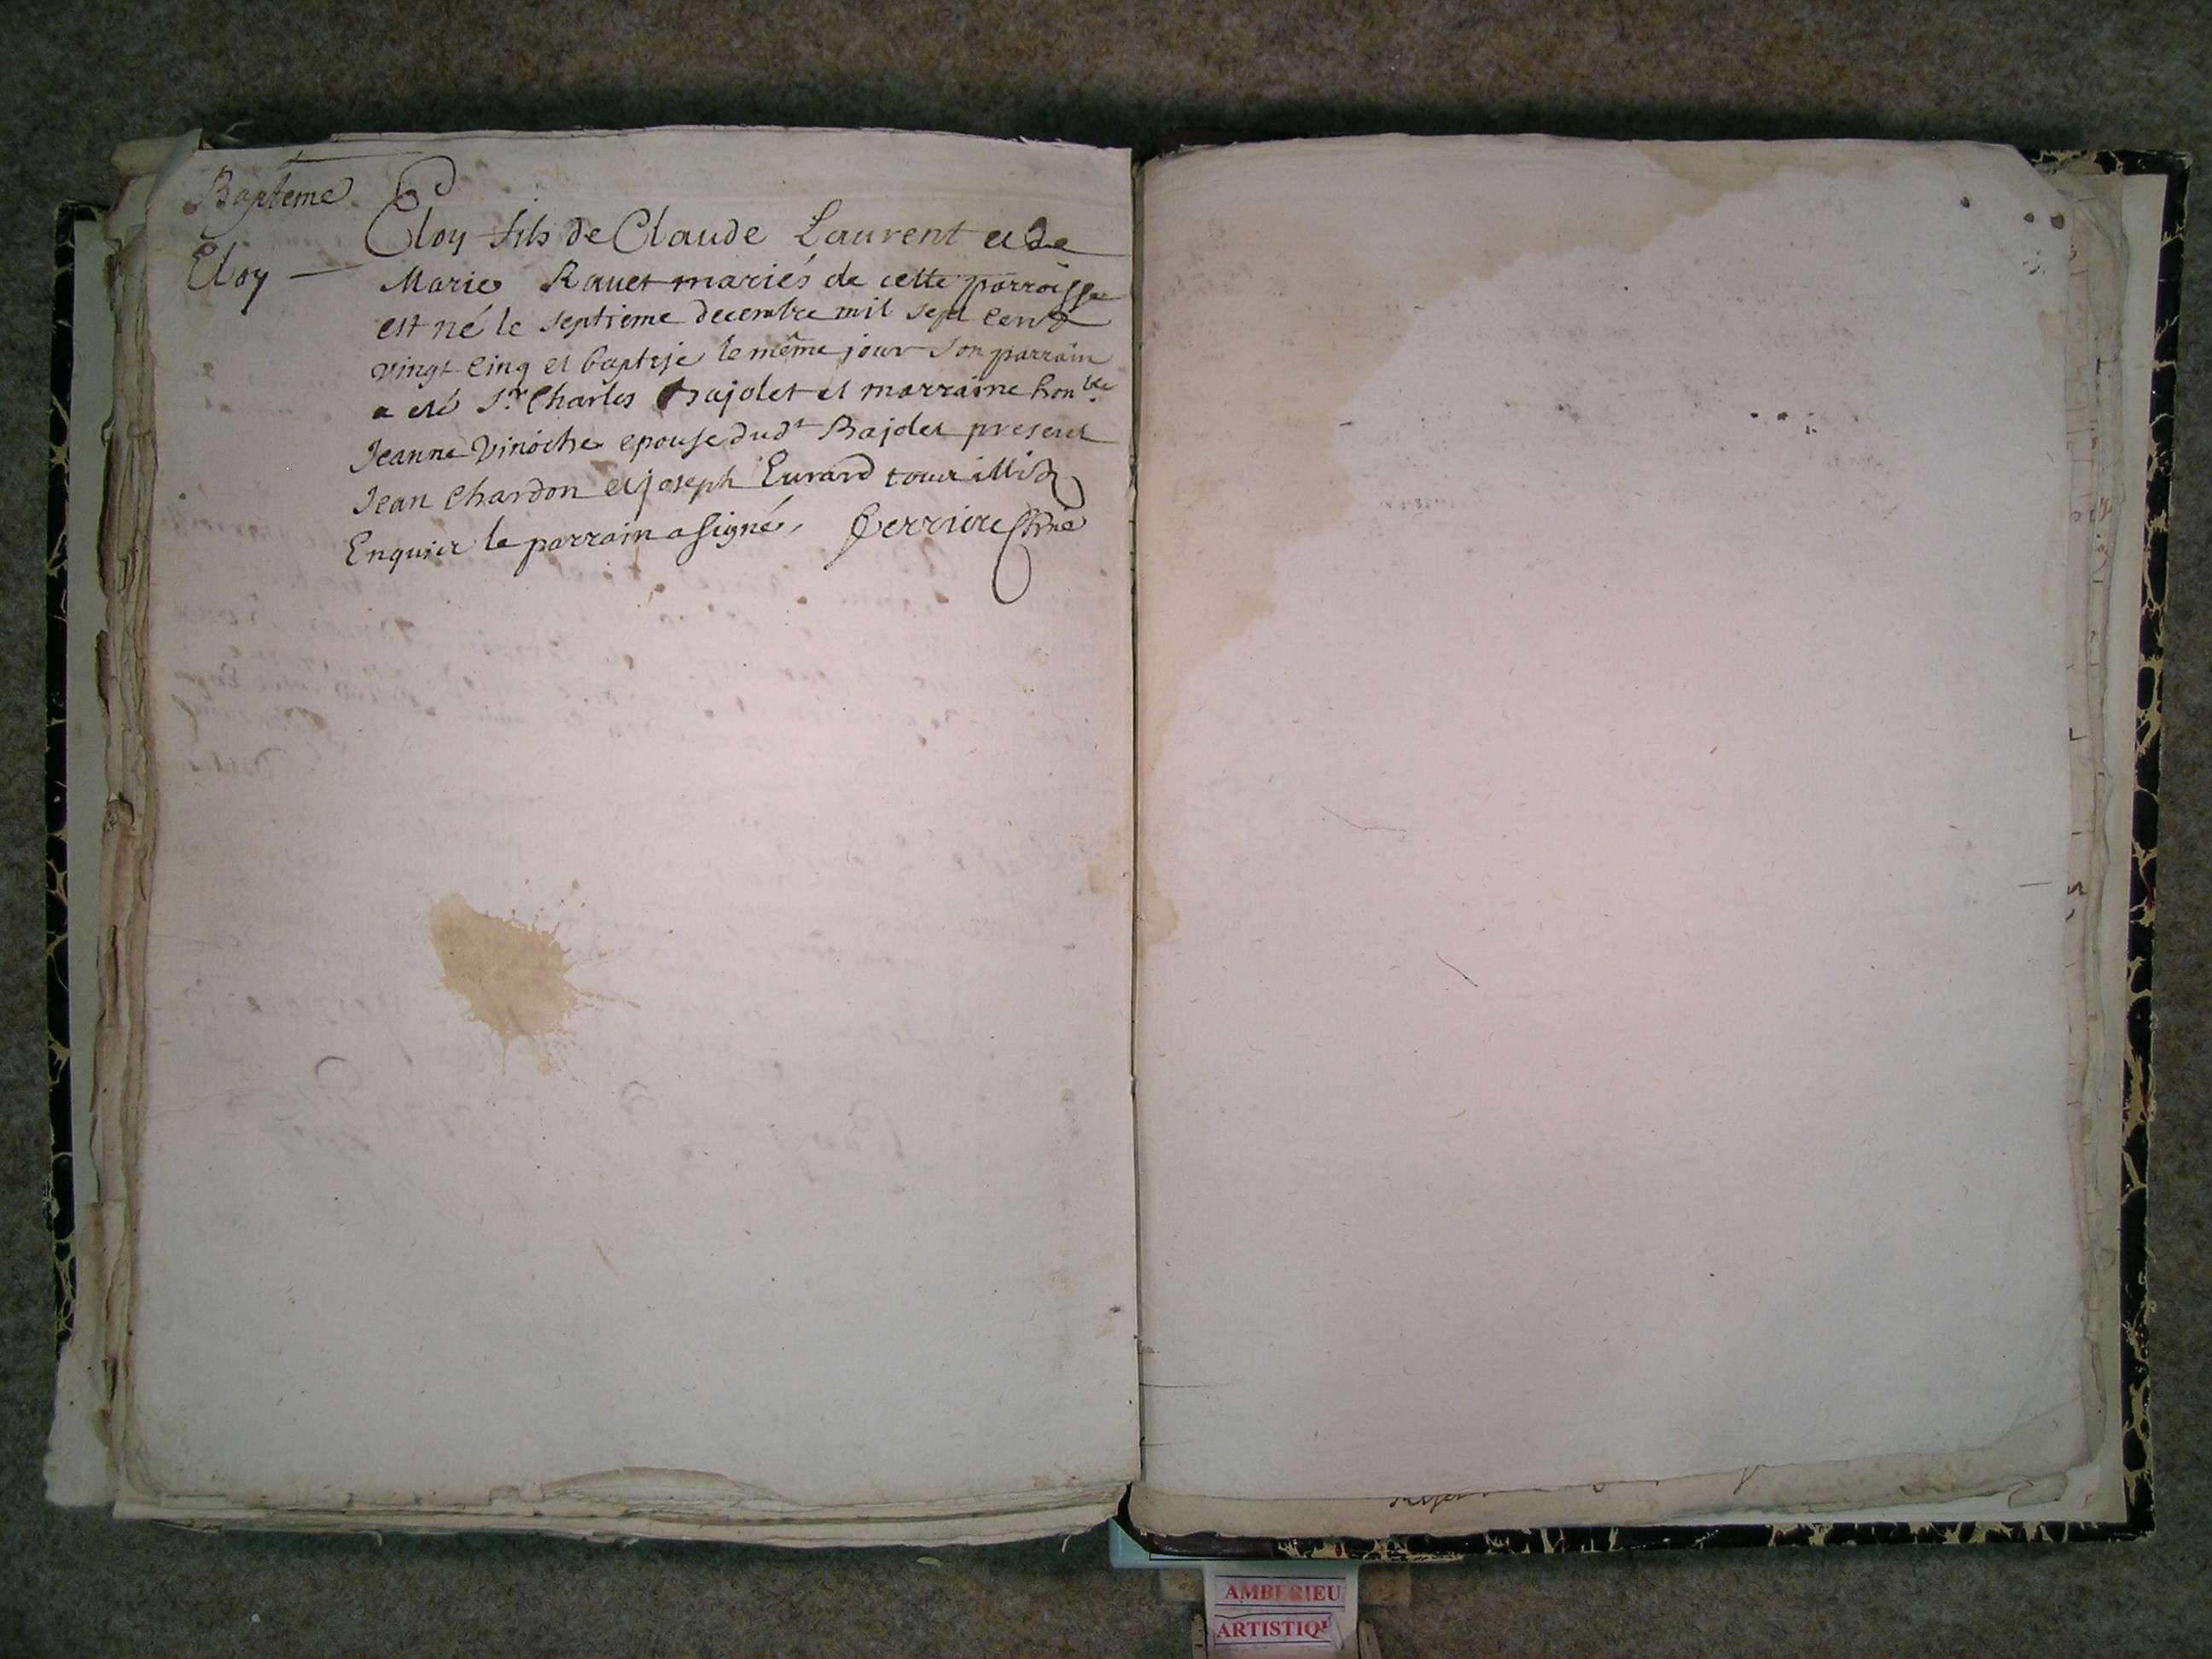 Bapteme
Eloy
Eloy fils de Claude Laurent et de
Marie Ravet mariés de cette parroisse
est né le septieme decembre mil sept cent
vingt cinq et baptisé le même jour son parrain
a eté Sr. Charles Bajolet et marraine honble
Jeanne Vinoche epouse dudt Bajolet presens
Jean Chardon et joseph Evrard tous illit.
Enquier le parrain a signé, Perriere
AMBERIEU
ARTISTIQ